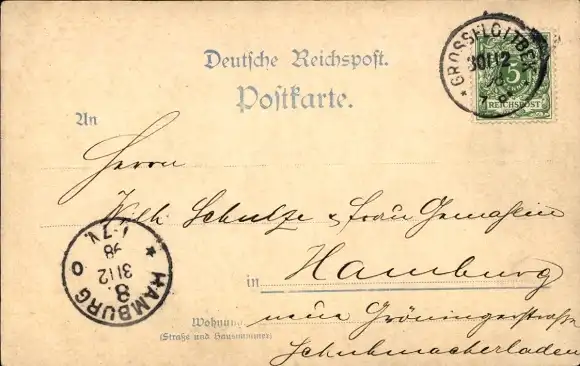 Deutsche Reichspost.
Postkarte.
GROSSFLOTTBEK
30/12
98
7
5
REICHSPOST
An
Herrn
Wilh. Schultze & frau Gemahlin
in Hamburg
neue Gröningerstraße
Wohnung
(Straße und Hausnummer)
Schuhmacherladen
HAMBURG
8
31/12
98
1-7V.